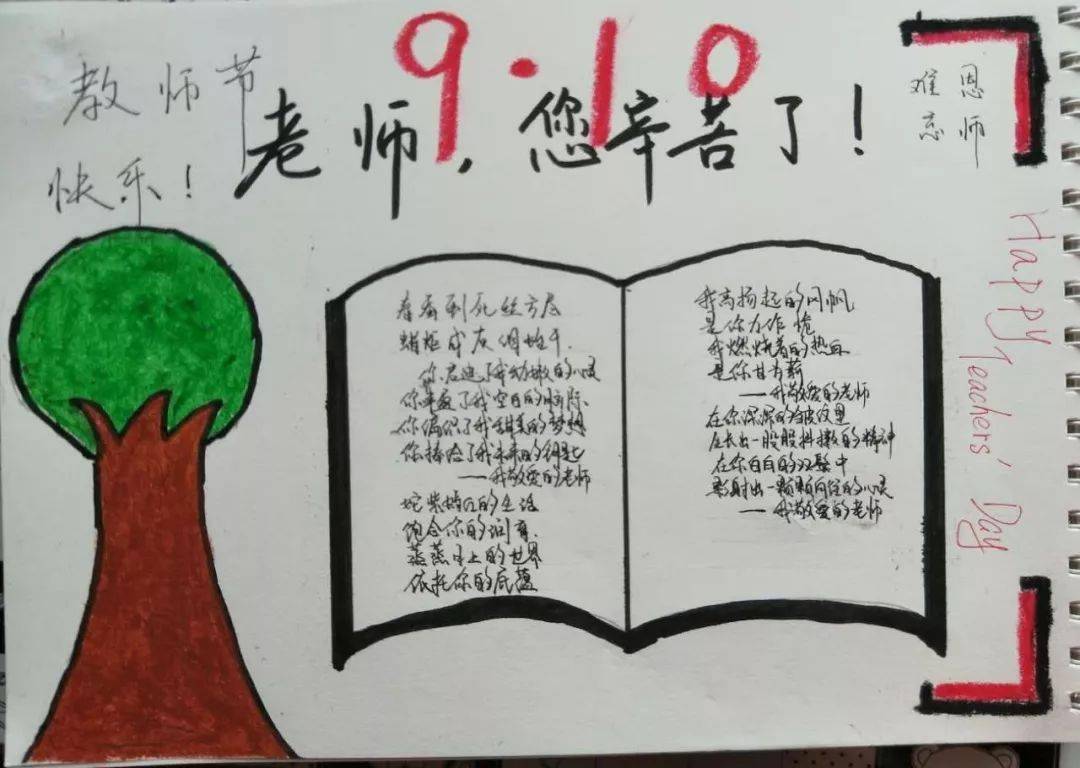 9·10
教师节
快乐！
老师，您辛苦了！
恩师
难忘
Happy Teachers' Day
春蚕到死丝方尽
蜡炬成灰泪始干.
你启迪了我幼嫩的心灵
你丰盈了我空白的脑际.
你编织了我甜美的梦想
你捧给了我未来的钥匙
——我敬爱的老师
姹紫嫣红的生活
饱含你的润育.
蒸蒸日上的世界
依托你的底蕴
我高扬起的风帆
是你力作桅
我燃烧着的热血
是你甘为薪
——我敬爱的老师
在你深深的皱纹里
生长出一股股抖擞的精神
在你白白的双鬓中
影射出一颗颗向往的心灵
——我敬爱的老师